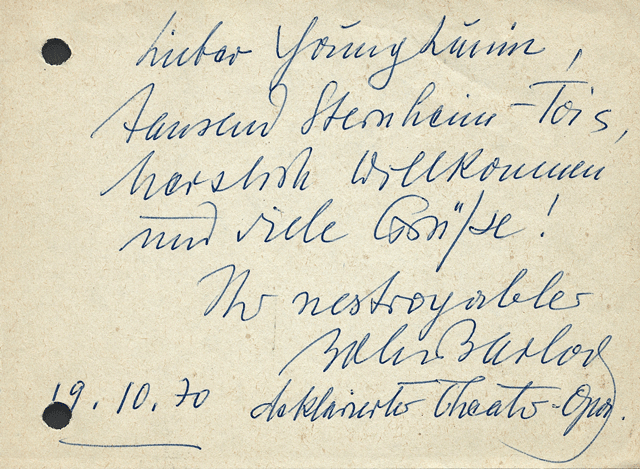 Lieber
tausend Sternheim-Tois,
herzlich Willkommen
und viele Grüße!
Ihr nestroyabler
19.10.70 deklarierter Theater-